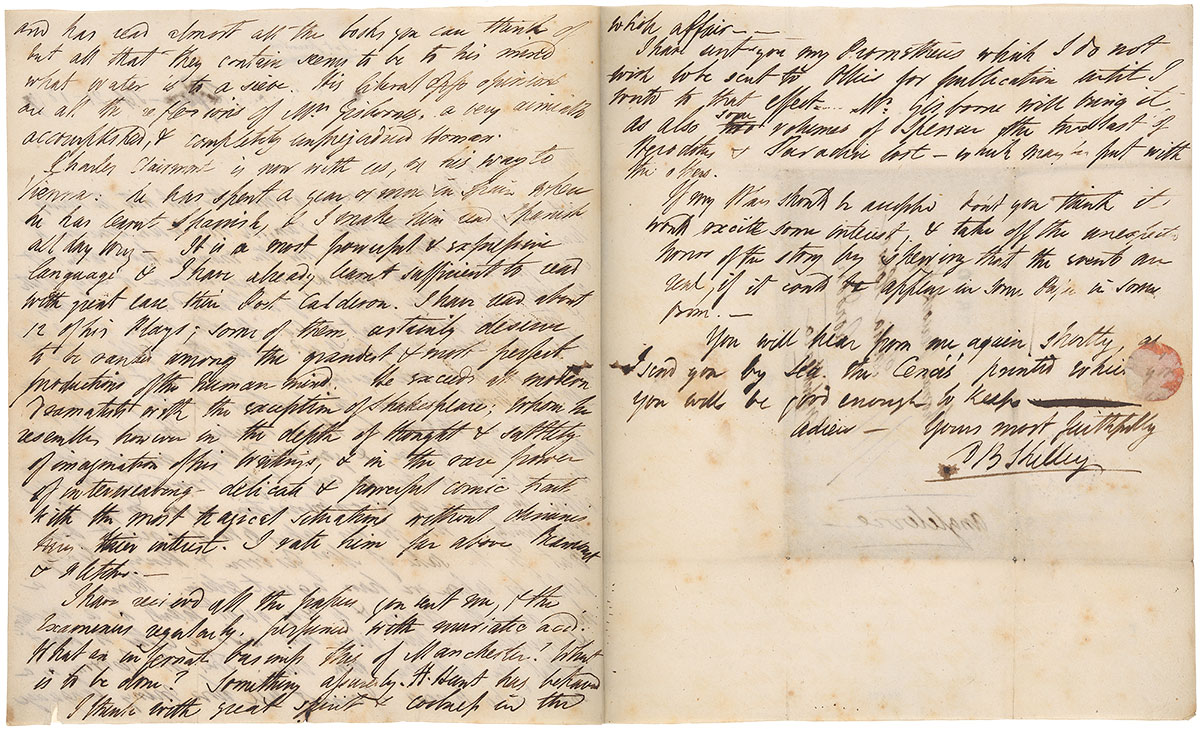 and has read almost all the books you can think of
but all that they contain seems to be to his mind
what water is to a sieve. His liberal opinions
are all the reflexions of Mrs. Gisborne, a very amiable
accomplished, & completely unprejudiced woman.
Charles Clairmont is now with us, on his way to
Vienna. He has spent a year or more in Spain where
he has learnt Spanish, & I make him read Spanish
all day long — It is a most powerful & expressive
language & I have already learnt sufficient to read
with great ease their Poet Calderon. I have read about
12 of his Plays; some of them certainly deserve
to be ranked among the grandest & most perfect
productions of the human mind. He exceeds all modern
Dramatists with the exception of Shakespeare; whom he
resembles however in the depth of thought & subtlety
of imagination of his writings, & in the rare power
of interweaving delicate & powerful comic traits
with the most tragical situations without diminis
hing their interest. I rate him far above Beaumont
& Fletcher.—
I have received all the papers you sent me, & the
Examiners regularly, perfumed with muriatic acid.
What an infernal business this of Manchester! What
is to be done? Something assuredly. H. Hunt has behaved
I think with great spirit & coolness in the
whole affair.——
I have sent you my Prometheus which I do not
wish to be sent to Ollier for publication until I
write to that effect. Mr. Gisborne will bring it,
as also some volumes of Spenser the two last of
Herodotus & Paradise Lost — which may be put with
the others.
If my Play should be accepted don't you think it
would excite some interest, & take off the unexpected
horror of the story by shewing that the events are
real, if it could be appear in some Paper in some
form.—
You will hear from me again shortly, as
I send you by sea the Cenci's printed which you
you will be good enough to keep
Adieu — Yours most faithfully
P B Shelley